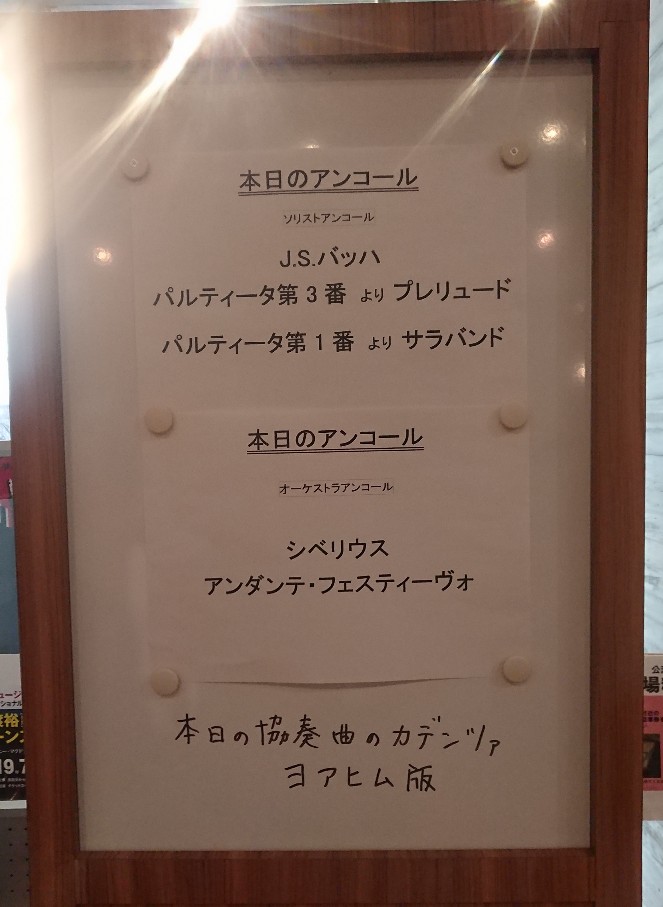 本日のアンコール
ソリストアンコール
J.S.バッハ
パルティータ第3番 より プレリュード
パルティータ第1番 より サラバンド
本日のアンコール
オーケストラアンコール
シベリウス
アンダンテ・フェスティーヴォ
本日の協奏曲のカデンツァ
ヨアヒム版
19.7